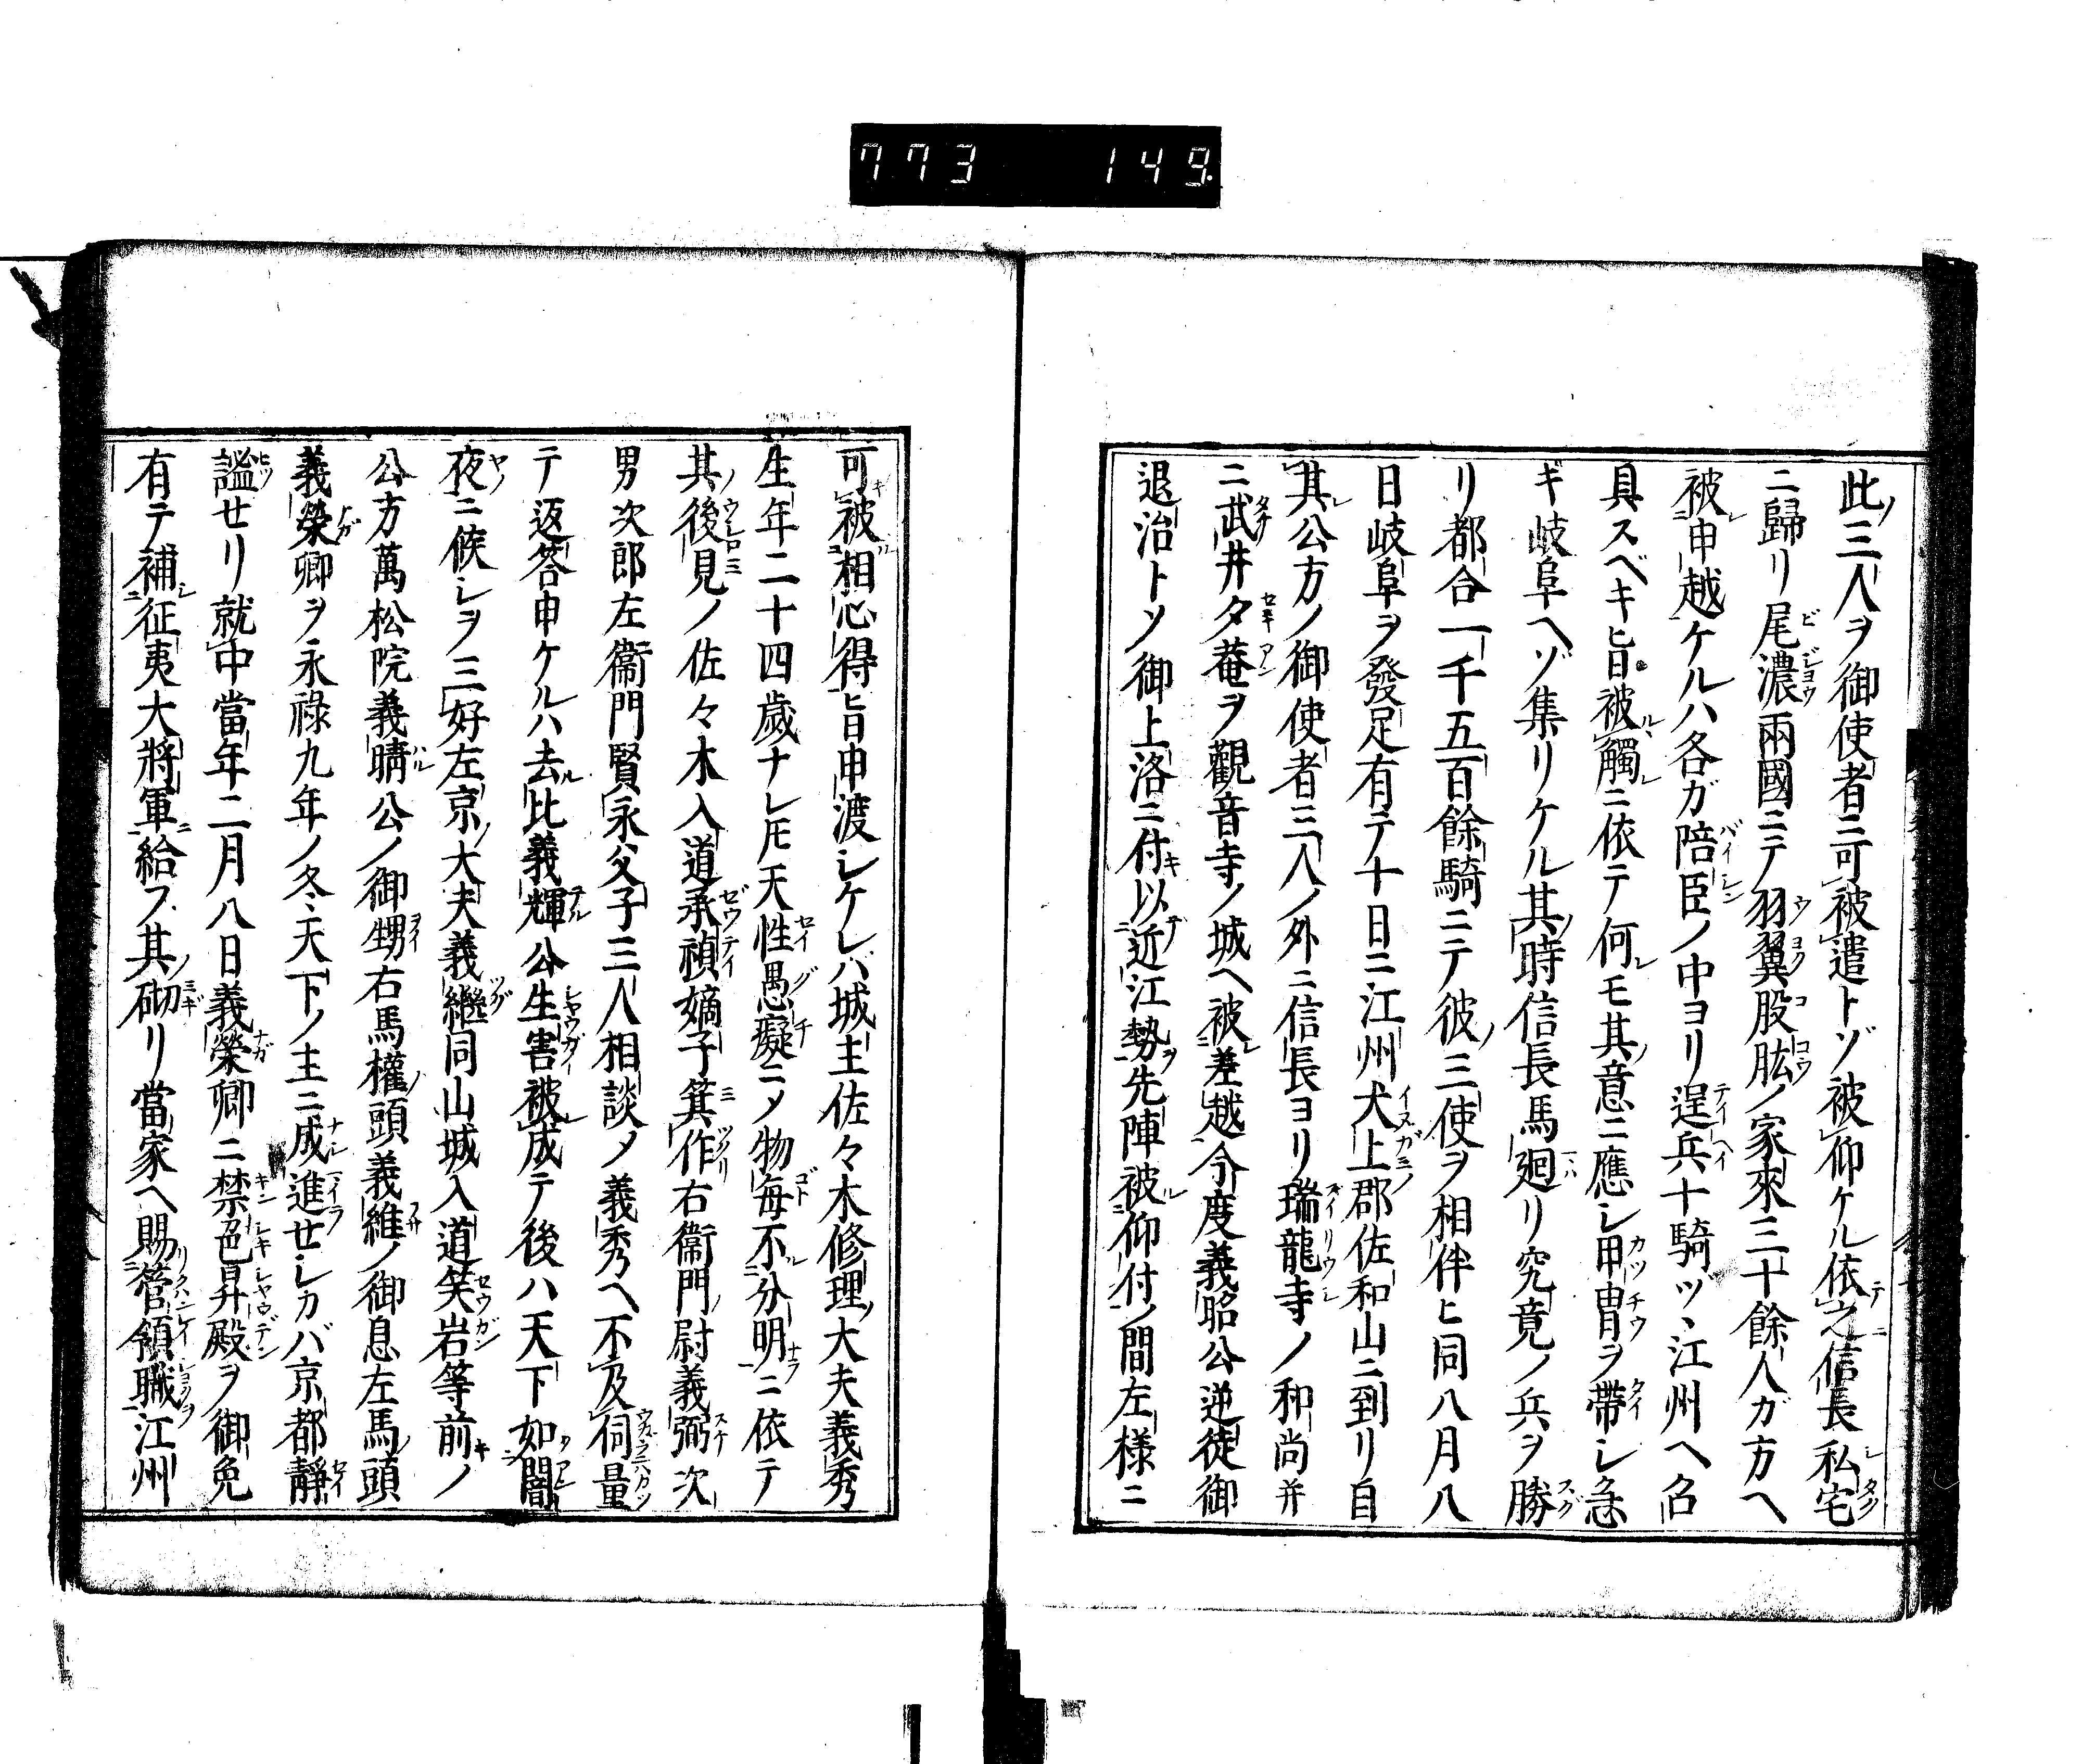 773 149.
此三人ヲ御使者ニ可被遣トゾ被仰ケル依之信長私宅
ニ歸リ尾濃兩國ニテ羽翼股肱ノ家來三十餘人ガ方へ
被申越ケルハ各ガ陪臣ノ中ヨリ逞兵十騎ツヽ江州へ召
具スベキ旨被觸ニ依テ何モ其意ニ應シ甲冑ヲ帶シ急
ギ岐阜へゾ集リケル其時信長馬廻リ究竟ノ兵ヲ勝
リ都合一千五百餘騎ニテ彼三使ヲ相伴ヒ同八月八
日岐阜ヲ發足有テ十日ニ江州犬上郡佐和山ニ到リ自
其公方ノ御使者三人ノ外ニ信長ヨリ瑞龍寺ノ和尚并
ニ武井夕菴ヲ觀音寺ノ城へ被差越今度義昭公逆徒御
退治トメ御上洛ニ付以近江勢先陣被仰付ノ間左樣ニ
可被相心得旨申渡シケレバ城主佐々木修理大夫義秀
生年二十四歲ナレ𪜈天性愚癡ニメ物每不分明ニ依テ
其後見ノ佐々木入道承禎嫡子箕作右衞門尉義弼次
男次郎左衞門賢永父子三人相談メ義秀へ不及伺量
テ返答申ケルハ去比義輝公生害被成テ後ハ天下如闇
夜ニ候シヲ三好左京大夫義繼同山城入道笑岩等前ノ
公方萬松院義晴公ノ御甥右馬權頭義維ノ御息左馬頭
義榮卿ヲ永祿九年ノ冬天下ノ主ニ成進せシカバ京都靜
謐せリ就中當年二月八日義榮卿ニ禁色昇殿ヲ御免
有テ補征夷大將軍給フ其砌リ當家へ賜管領職江州